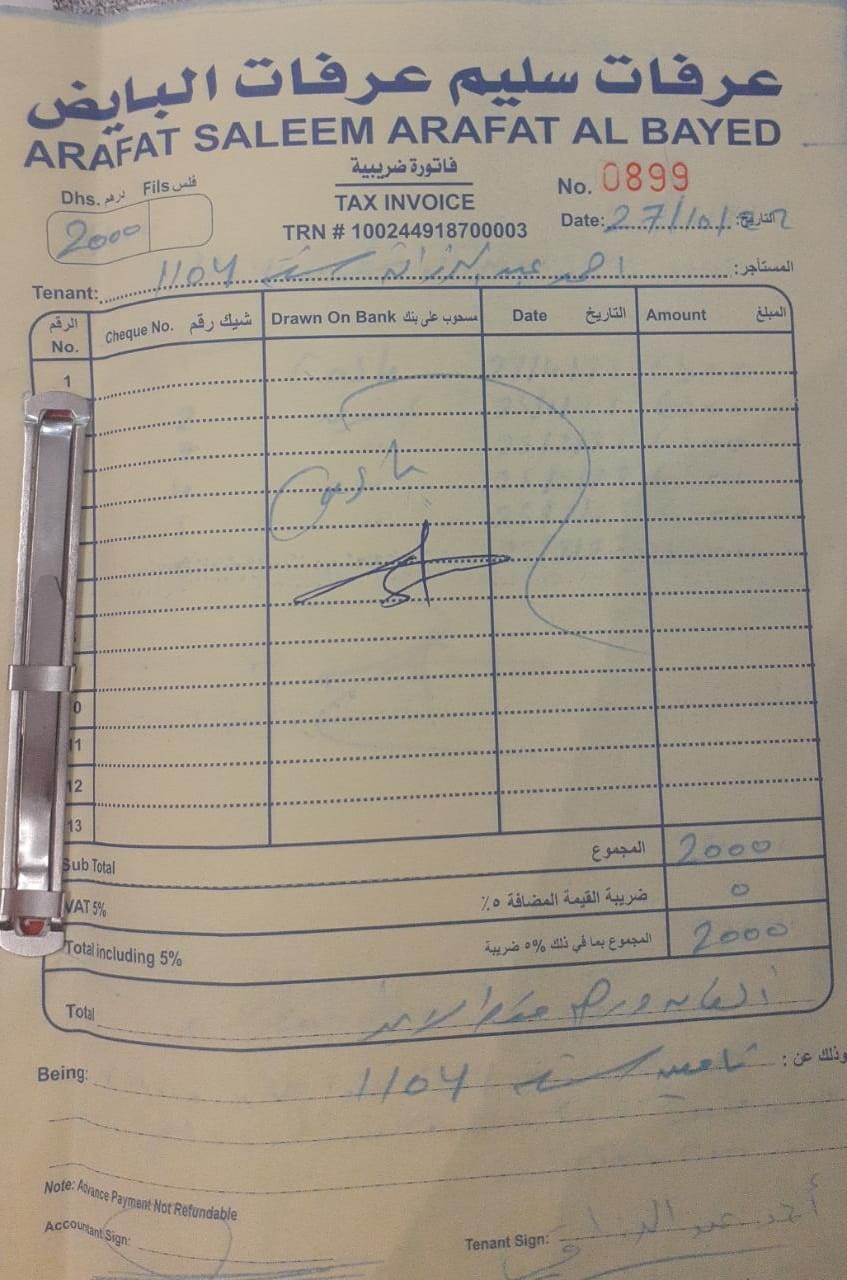 عرفات سليم عرفات البايض
ARAFAT SALEEM ARAFAT AL BAYED
فاتورة ضريبية
TAX INVOICE
TRN # 100244918700003
No. 0899
Date: 27/10/ التاريخ:
Dhs. درهم Fils فلس
2000
Tenant: احمد عبد الرزاق 1104 المستأجر:
الرقم No. Cheque No. شيك رقم Drawn On Bank مسحوب على بنك Date التاريخ Amount المبلغ
1
11
12
13
Sub Total المجموع 2000
VAT 5% ضريبة القيمة المضافة ٥٪ 0
Total including 5% المجموع بما في ذلك ٥% ضريبة 2000
Total الفان درهم فقط لا غير
Being: تامين 1104 وذلك عن :
Note: Advance Payment Not Refundable
Accountant Sign:
Tenant Sign: أحمد عبد الرزاق